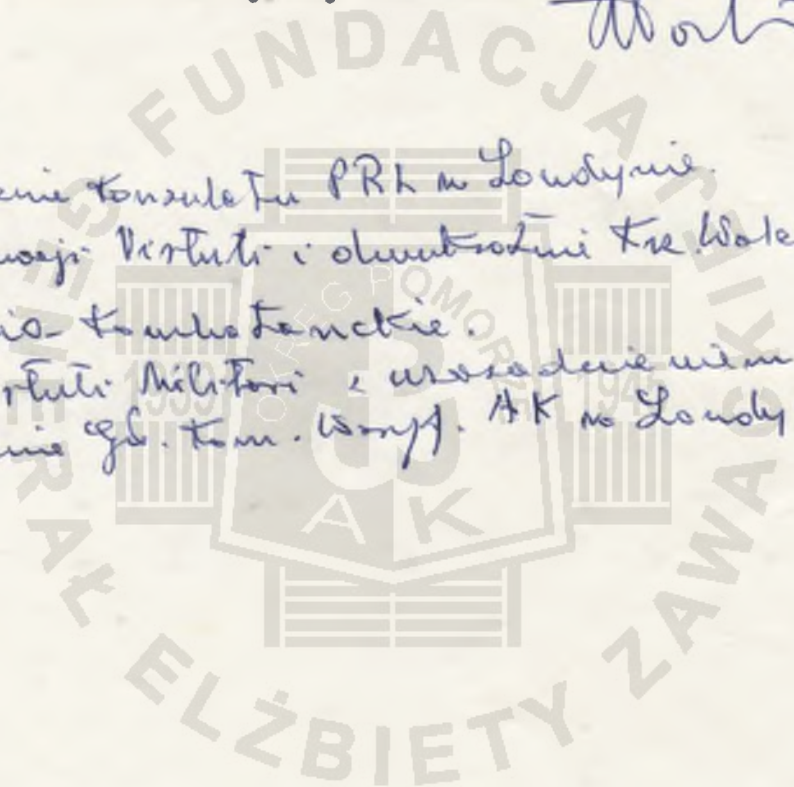 enie Konsulatu PRL w Londynie.
Virtuti i dwukrotnie Krz. Wale
io-kombatanckie.
rtuti Militari z uzasadnieniem
nie Gł. Kom. Weryf. AK w Londy
FUNDACJA GENERAŁ ELŻBIETY ZAWACKIEJ
OKRĘG POMORZE
1939 1945
AK